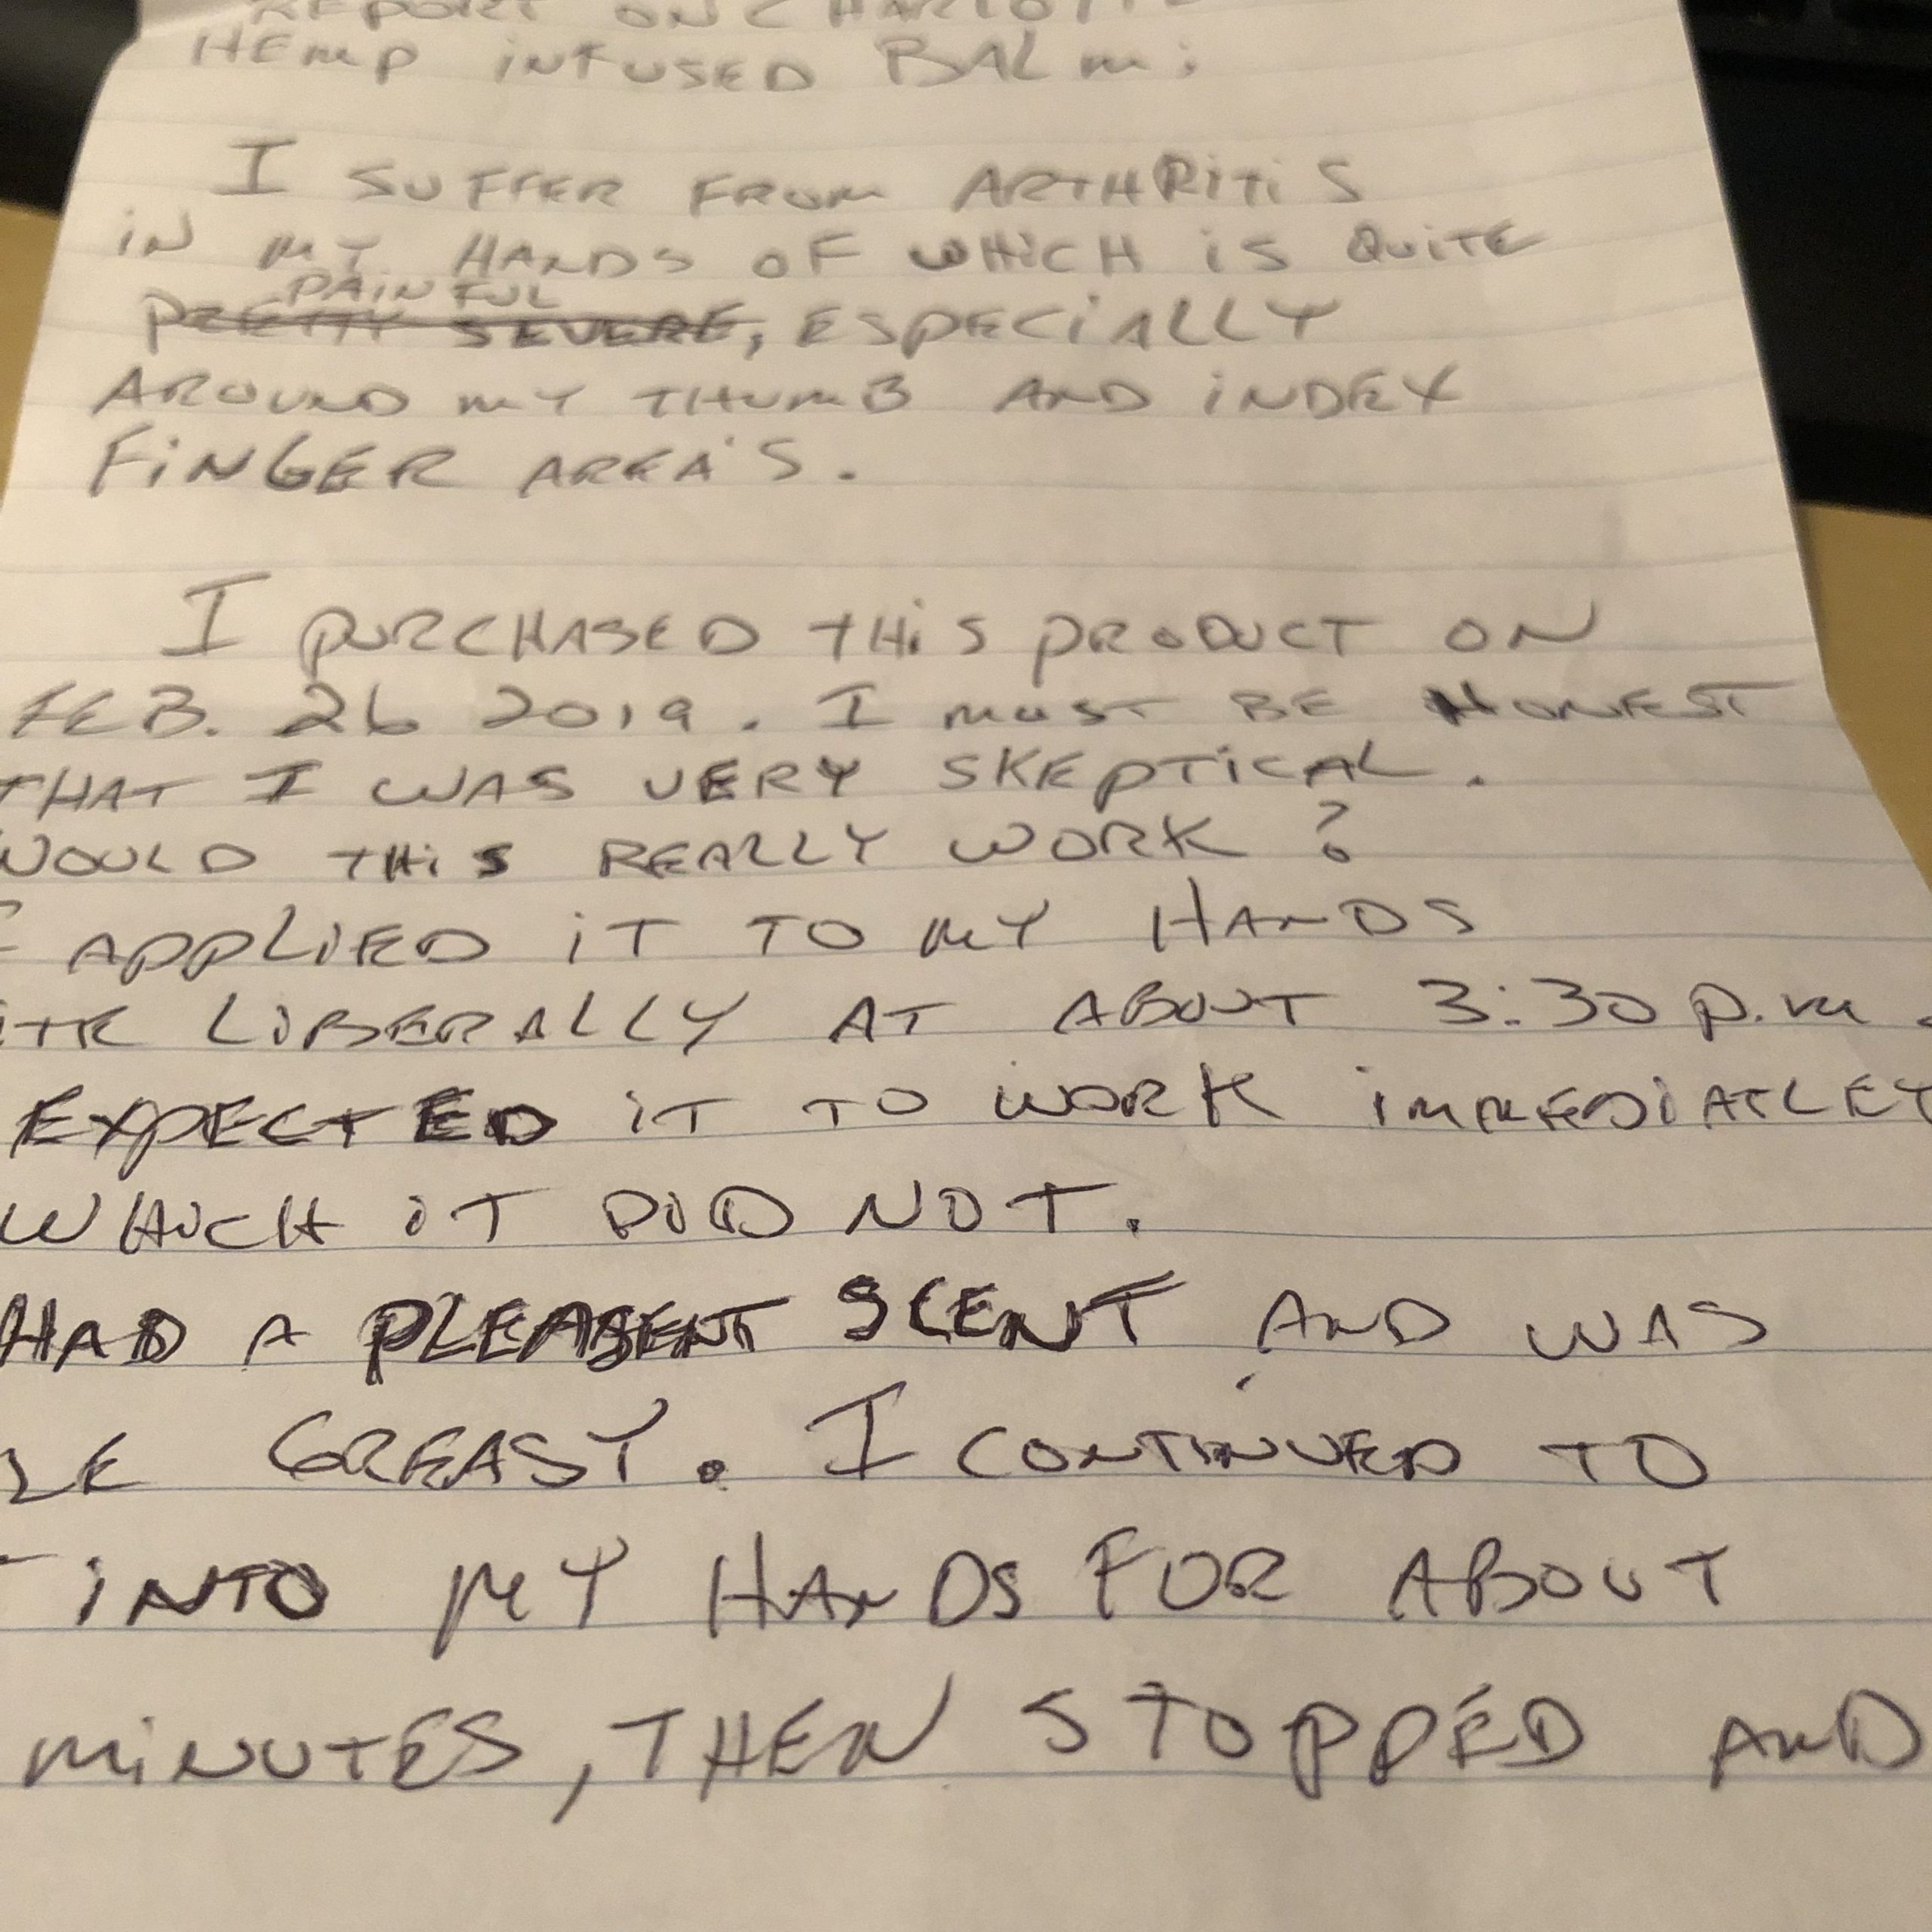 REPORT ON CHARLOTTE
HEMP INFUSED BALM:
I SUFFER FROM ARTHRITIS
IN MY HANDS OF WHICH IS QUITE
PAINFUL
PRETTY SEVERE, ESPECIALLY
AROUND MY THUMB AND INDEX
FINGER AREA'S.
I PURCHASED THIS PRODUCT ON
FEB. 26 2019. I MUST BE HONEST
THAT I WAS VERY SKEPTICAL.
WOULD THIS REALLY WORK?
I APPLIED IT TO MY HANDS
LIBERALLY AT ABOUT 3:30 P.M.
EXPECTED IT TO WORK IMMEDIATLEY
WHICH IT DID NOT.
HAD A PLEASENT SCENT AND WAS
LE GREASY. I CONTINUED TO
INTO MY HANDS FOR ABOUT
MINUTES, THEN STOPPED AND